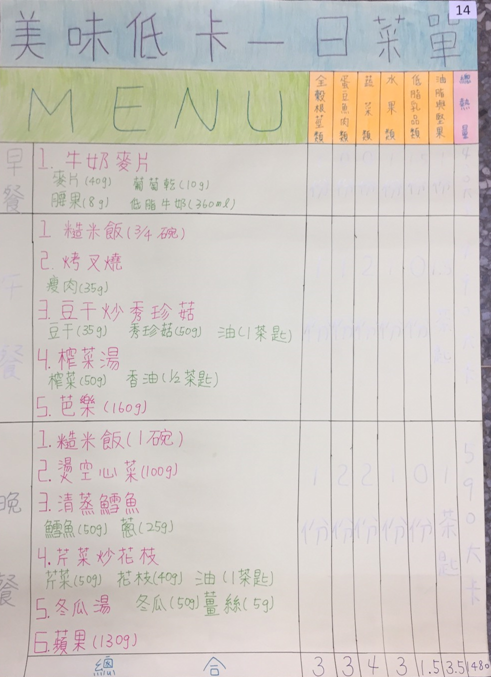 14
美味低卡一日菜單
MENU
全穀根莖類
蛋豆魚肉類
蔬菜類
水果類
低脂乳品類
油脂與堅果
總熱量
早餐
1. 牛奶麥片
麥片(40g) 葡萄乾(10g)
腰果(8g) 低脂牛奶(360ml)
午餐
1. 糙米飯(3/4碗)
2. 烤叉燒
瘦肉(35g)
3. 豆干炒秀珍菇
豆干(35g) 秀珍菇(50g) 油(1茶匙)
4. 榨菜湯
榨菜(50g) 香油(1/2茶匙)
5. 芭樂(160g)
晚餐
1. 糙米飯(1碗)
2. 燙空心菜(100g)
3. 清蒸鱈魚
鱈魚(50g) 蔥(25g)
4. 芹菜炒花枝
芹菜(50g) 花枝(40g) 油(1茶匙)
5. 冬瓜湯 冬瓜(50g) 薑絲(5g)
6. 蘋果(130g)
1份 2份 2份 1份 0份 1茶匙 590大卡
總合 3 3 4 3 1.5 3.5 1480